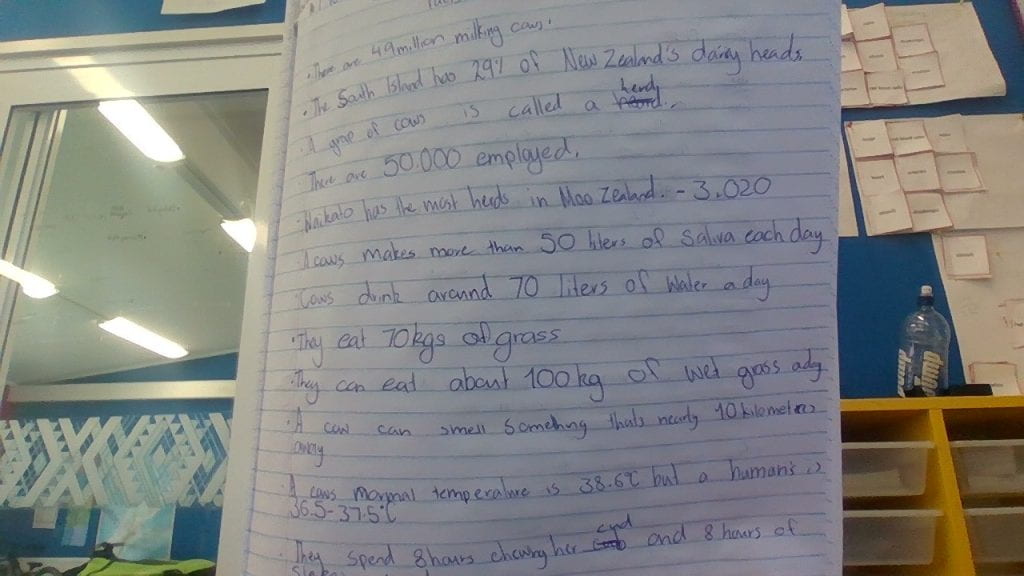 • There are 49million milking cows.
• The South Island has 29% of New Zealand's dairy heads
• A grop of cows is called a herd.
• There are 50.000 employed.
Waikato has the most herds in Moo Zealand. - 3.020
A cows makes more than 50 liters of Saliva each day
• Cows drink around 70 liters of Water a day
• They eat 70kgs of grass
• They can eat about 100kg of wet grass ady
• A cow can smell something thats nearly 10 kilometres
away
A cows morgnal temperature is 38.6°C but a human's is
36.5-37.5°C
• They spend 8hours chewing her cud and 8 hours of